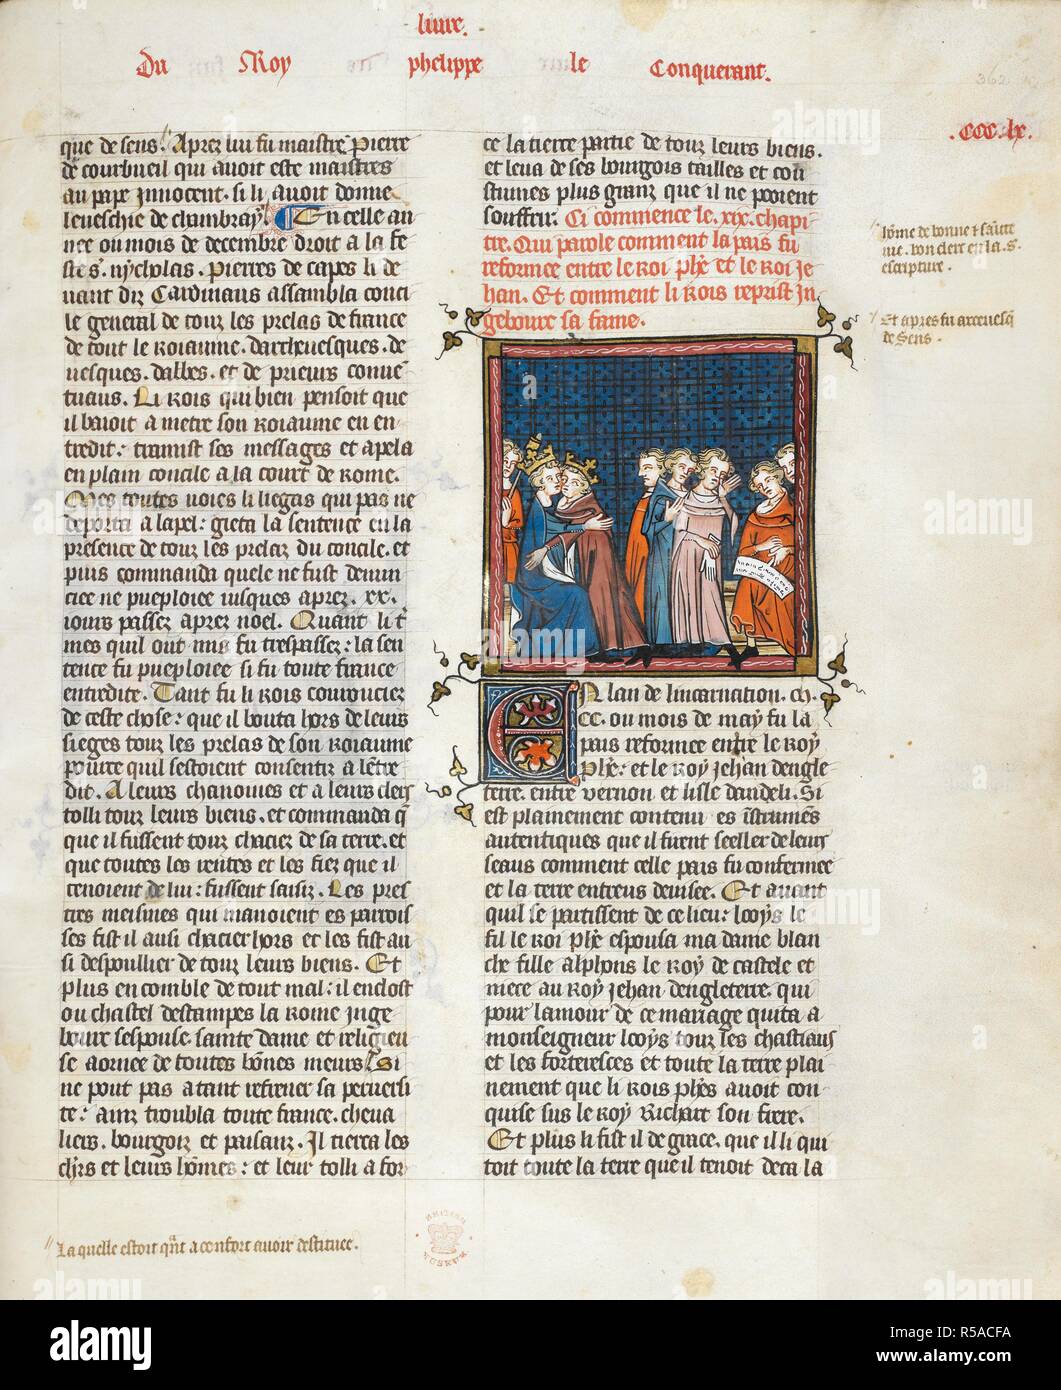 liure.
Du Roy phelippe le Conquerant.
362
.CCC.lx.
que de sens. Apres lui fu maistre Pierre
de courbueil qui auoit este maistres
au pape Innocent. si li auoit donne
leueschie de chambray. En celle an
nee ou mois de decembre droit a la fe
ste s. nycholas. pierres de capes li de
uant diz Cardinaus assambla conci
le general de touz les prelas de france
de tout le Roiaume. darcheuesques. de
uesques. dabbes. et de prieurs conue
tuaus. Li Rois qui bien pensoit que
il baoit a metre son Roiaume en en
tredit: tramist ses messages et apela
en plain concile a la court de Rome.
Mes toutes uoies li liegas qui pas ne
deporta a lapel: gieta la sentence en la
presence de touz les prelaz du concile. et
puis commanda quele ne fust denun
ciee ne pueploiee iusques aprez. xx.
iours passez aprez noel. Quant li t
mes quil out mis fu trespassez: la sen
tence fu pueploiee si fu toute france
entredite. Tant fu li Rois courouciez
de ceste chose: que il bouta hors de leurs
sieges touz les prelas de son Roiaume
pource quil sestoient consentiz a lentre
dit. A leurs chanoines et a leurs clers
tolli touz leurs biens. et commanda q
que il fussent touz chaciez de sa terre. et
que toutes les rentes et les fiez que il
tenoient de lui: fussent saisiz. Les pres
tres meismes qui manoient es parrois
ses fist il ausi chacier hors et les fist au
si despoullier de touz leurs biens. Et
plus en comble de tout mal: il enclost
ou chastel destampes la Rome Inge
bourc sespouse. sainte dame et religieu
se aornee de toutes bones meurs. Si
ne pout pas atant refrener sa peruersi
te: ainz troubla toute france. cheua
liers. bourgoiz et paisanz. Il tierca les
chrs et leurs homes: et leur tolli a for
ce la tierce partie de touz leurs biens.
et leua de ses bourgois tailles et cou
stumes plus granz que il ne pooient
souffrir. Ci commence le .xix. chapi
tre. Qui parole comment la pais fu
reformee entre le Roi phe et le Roi Je
han. Et comment li Rois reprist In
gebourc sa fame.
En lan de lincarnation. m.
CC. ou mois de may fu la
pais reformee entre le Roy
phe: et le Roy Jehan dengle
terre. entre vernon et lisle dandeli. Si
est plainement contenu es istrumens
autentiques que il firent seeller de leurs
seaus comment celle pais fu confermee
et la terre entreus deuisee. Et auant
quil se partissent de ce lieu: looys le
fil le Roi phe espousa ma dame blan
che fille alphons le Roy de castele et
niece au Roy Jehan dengleterre. qui
pour lamour de ce mariage quita a
monseigneur looys touz les chastiaus
et les forteresces et toute la terre plai
nement que li Rois phes auoit con
quise sus le Roy Richart son frere.
Et plus li fist il de grace. que il li qui
toit toute la terre que il tenoit deca la
home de bonne et sainte
uie. bon clerc en la s.
escripture.
Et apres fu arceuesq
de Sens.
La quelle estoit qnt a confort auoir destituee.
BRITISH MUSEUM
alamy
alamy stock photo
R5ACFA
www.alamy.com